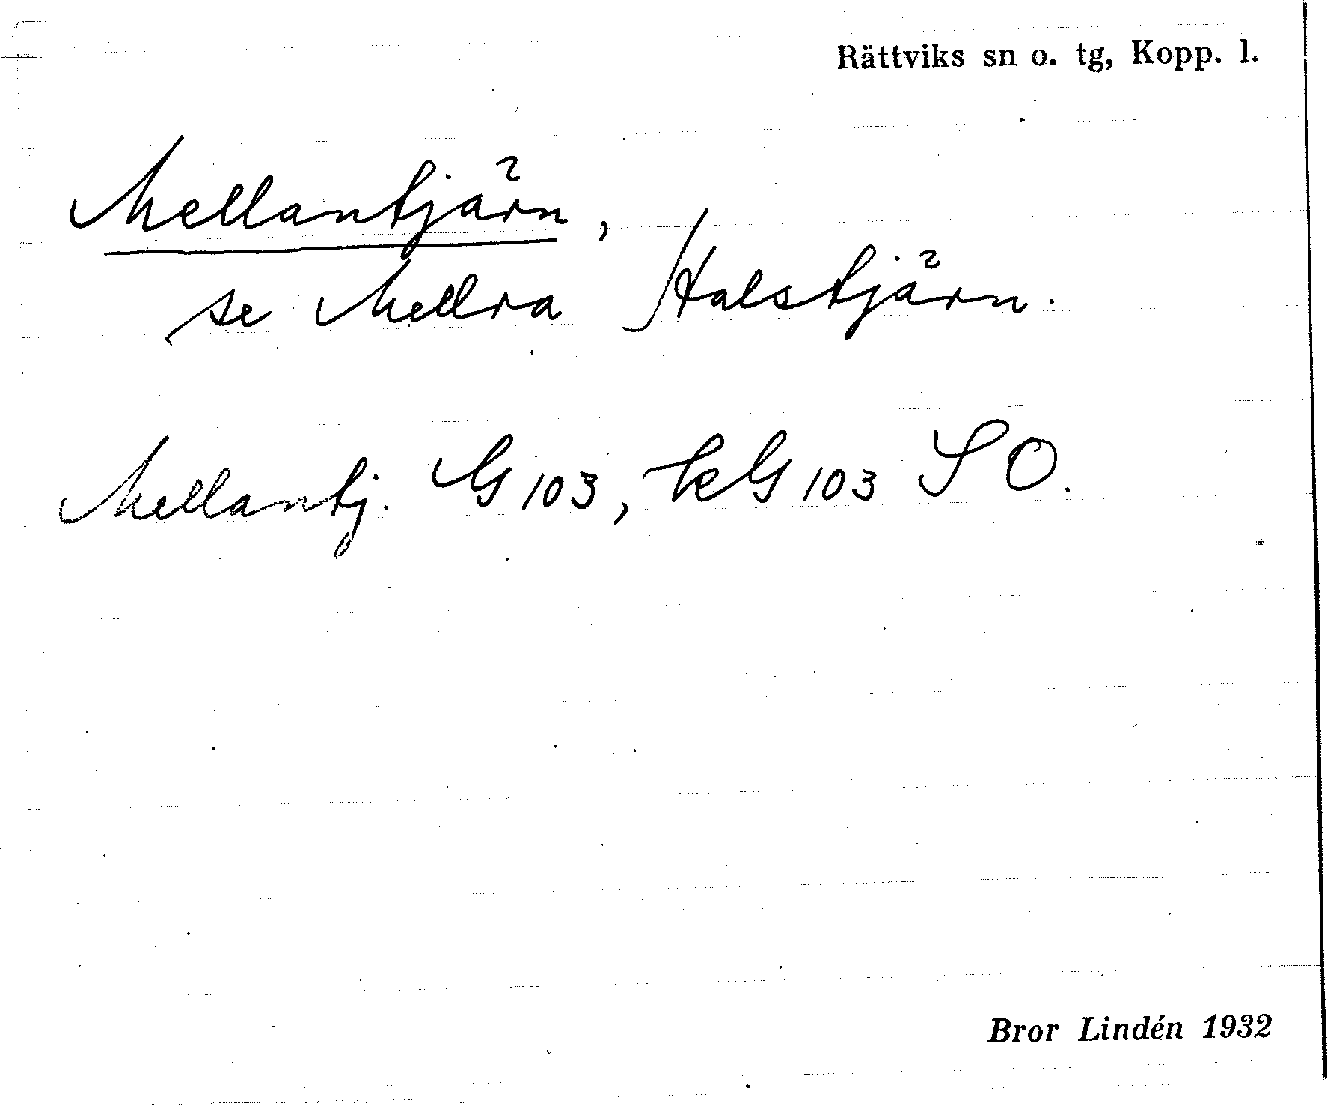 Rättviks sn o. tg, Kopp. l.
Mellantjärn,
se Mellra Halstjärn.
Mellantj. G 103, kG 103 SO.
Bror Lindén 1932